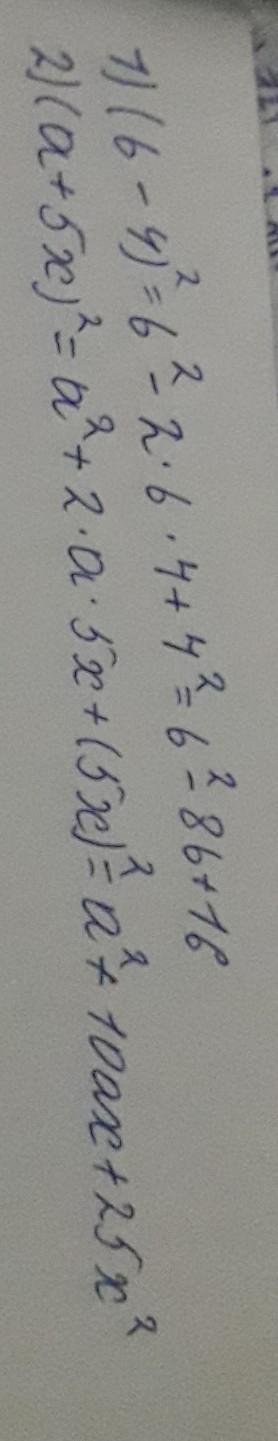 1) (b - 4)² = b² - 2 · b · 4 + 4² = b² - 8b + 16
2) (a + 5x)² = a² + 2 · a · 5x + (5x)² = a² + 10ax + 25x²